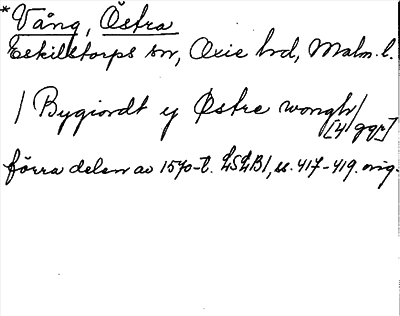 *Vång, Östra
Eskilstorps sn, Oxie hd, Malm. l.
/ Bygiordt ij Østre wongh/
[4 ggr]
förra delen av 1570-t. LSLB1, ss. 417-419. orig.